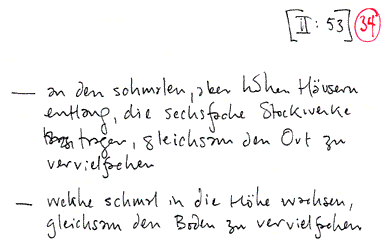 [II: 53] 34
— an den schmalen, aber hohen Häusern
entlang, die sechsfache Stockwerke
tragen, gleichsam den Ort zu
vervielfachen
— welche schmal in die Höhe wachsen,
gleichsam den Boden zu vervielfachen